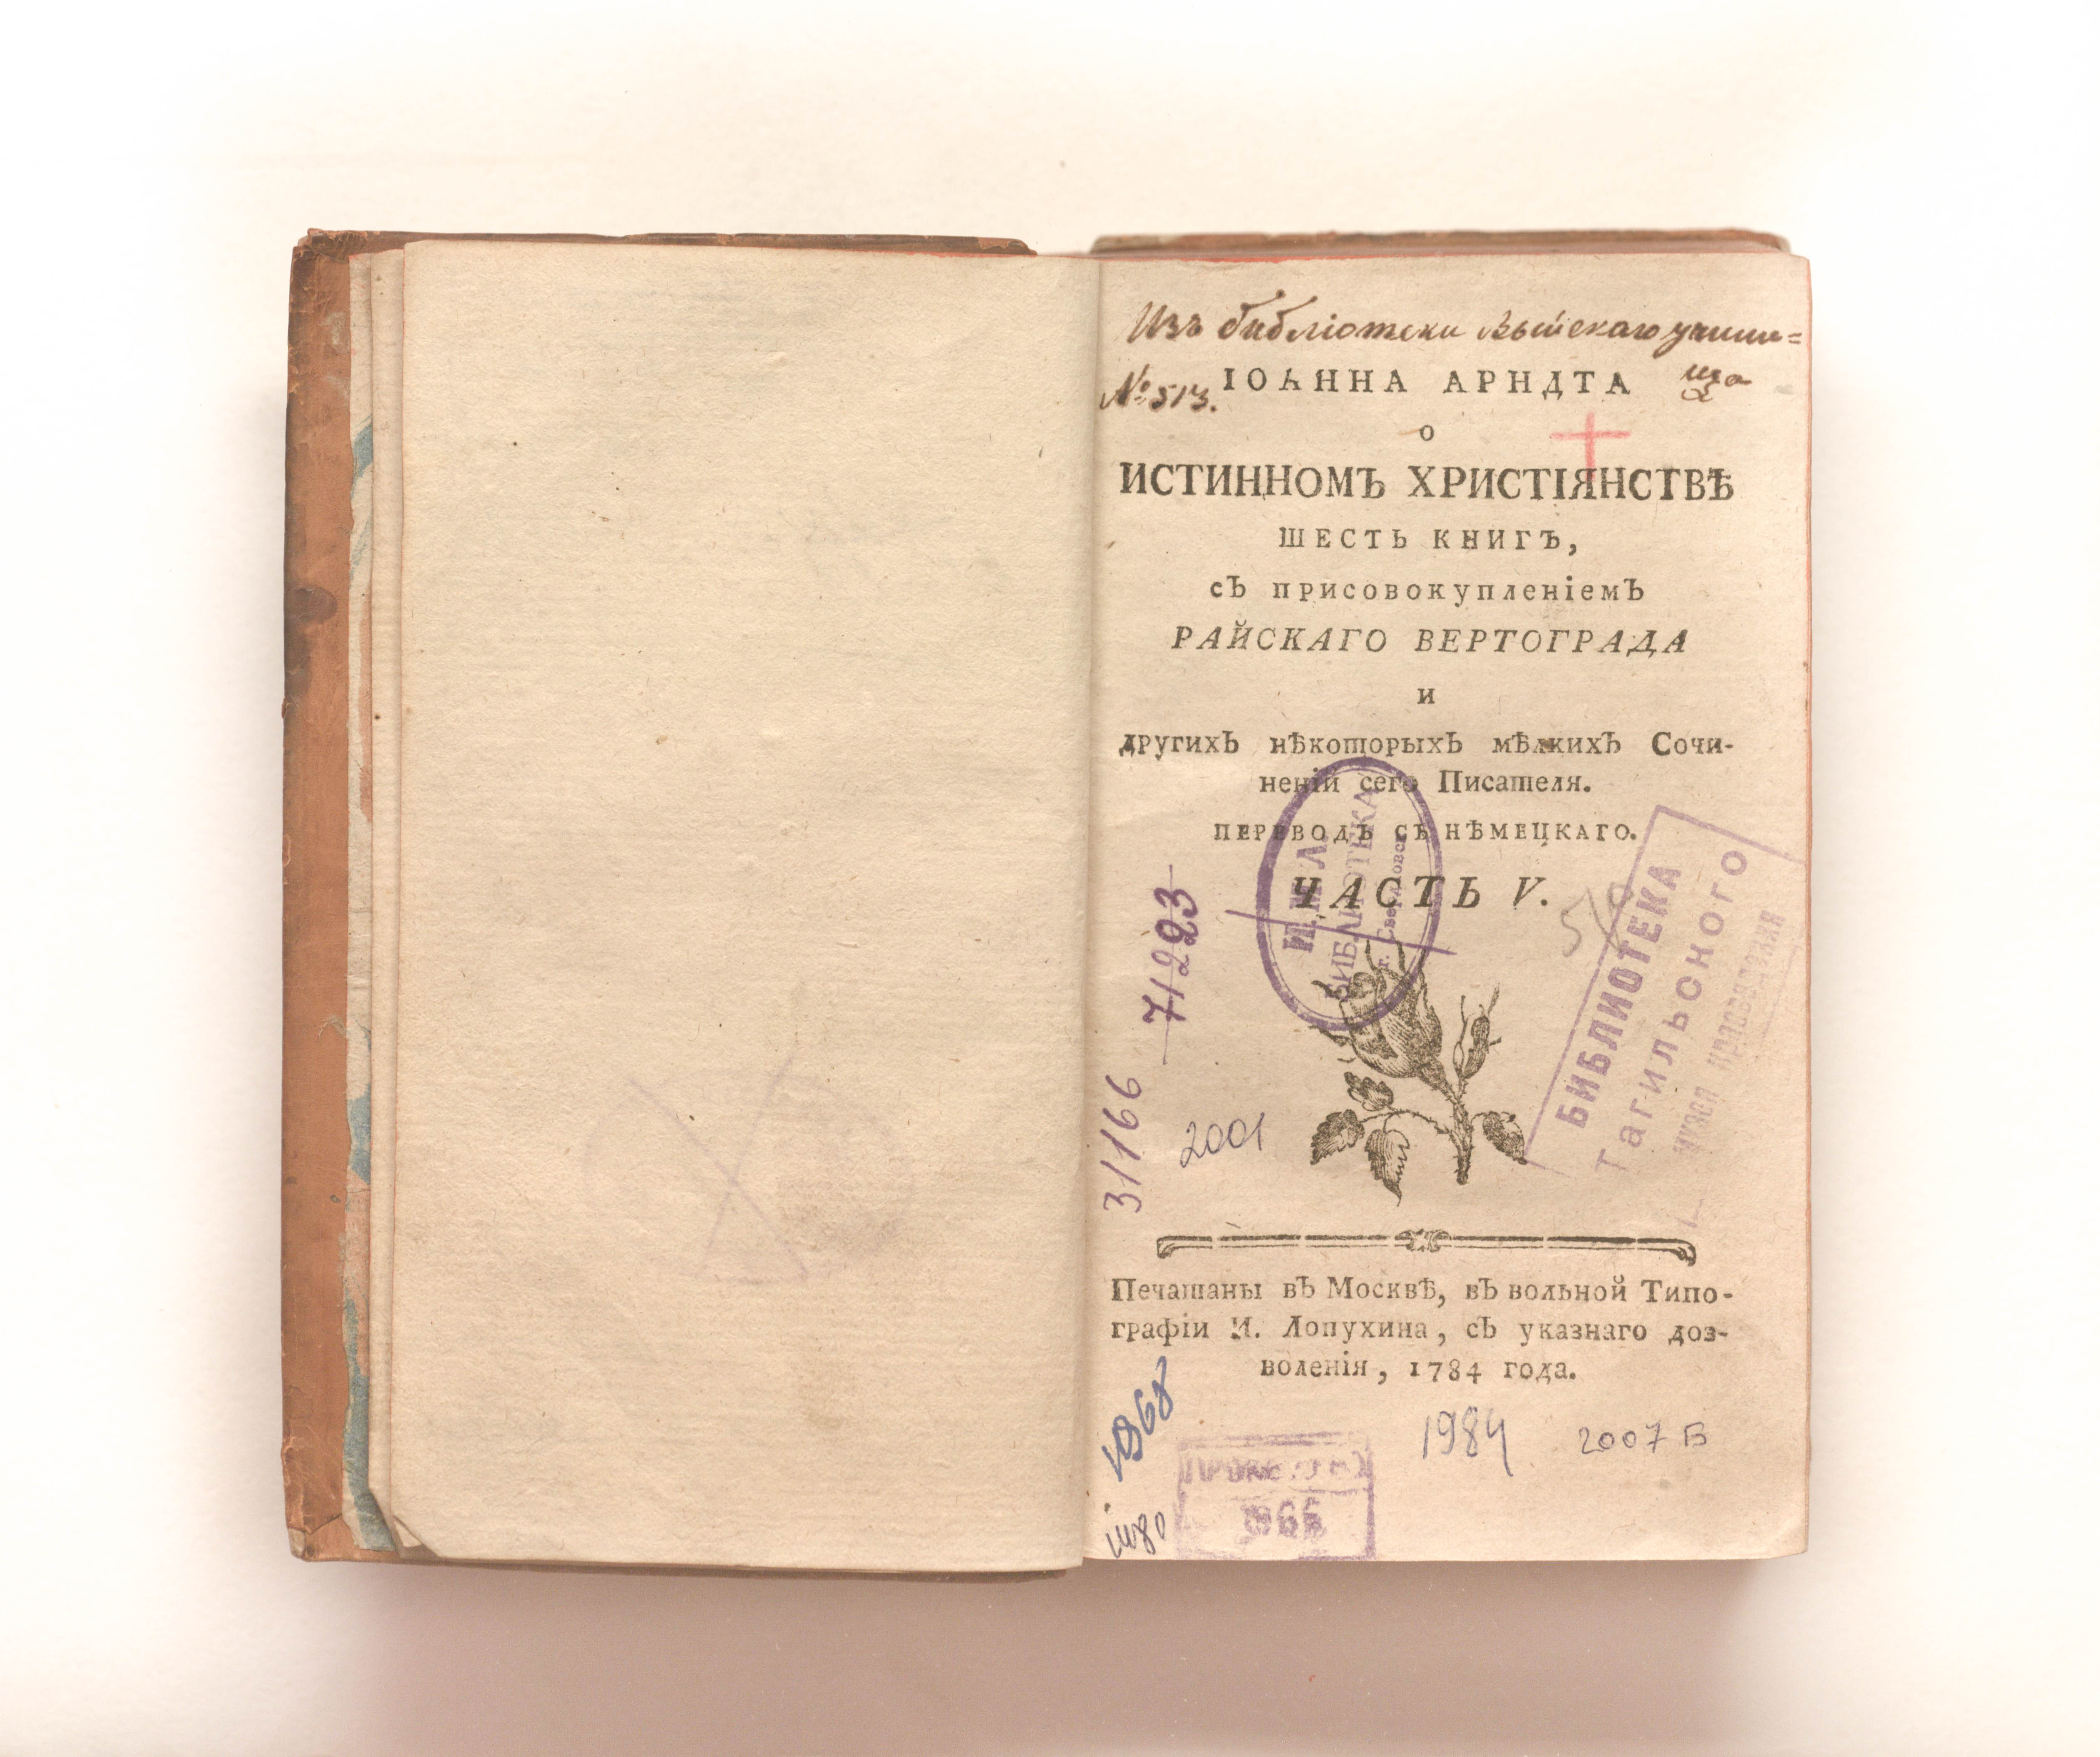 Изъ библіотеки Выйскаго учили=
ща
№ 513.
ІОАННА АРНДТА
о
ИСТИННОМЪ ХРИСТІЯНСТВѢ
ШЕСТЬ КНИГЪ,
съ присовокупленіемъ
РАЙСКАГО ВЕРТОГРАДА
и
другихъ нѣкоторыхъ мѣлкихъ Сочи-
неній сего Писателя.
ПЕРЕВОДЪ СЪ НѢМЕЦКАГО.
ЧАСТЬ V.
БИБЛИОТЕКА
г. Свердловск
БИБЛИОТЕКА
Тагильского
музея краеведения
71223
31166
2001
Печатаны въ Москвѣ, въ вольной Типо-
графіи И. Лопухина, съ указнаго доз-
воленія, 1784 года.
1968
1984
2007 Б